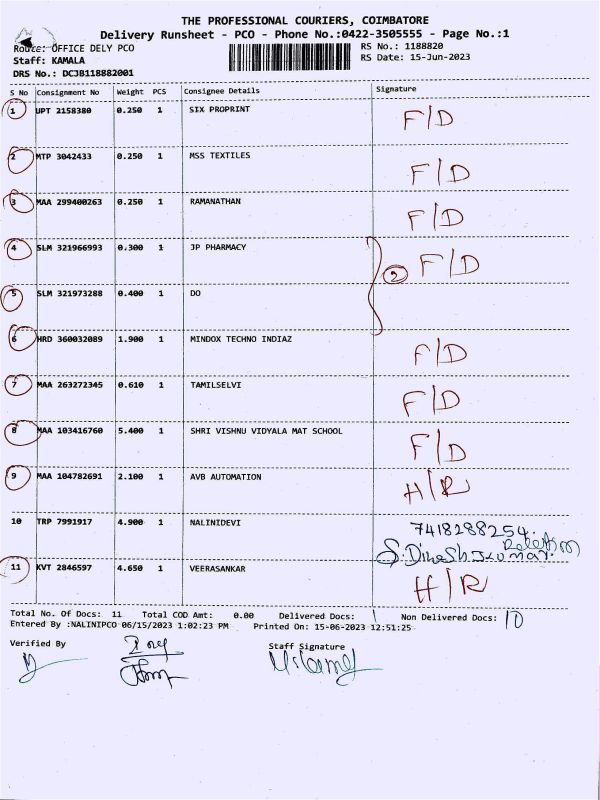 THE PROFESSIONAL COURIERS, COIMBATORE
Delivery Runsheet - PCO - Phone No.:0422-3505555 - Page No.:1
Route: OFFICE DELY PCO
RS No.: 1188820
Staff: KAMALA
RS Date: 15-Jun-2023
DRS No.: DCJB118882001
S No Consignment No Weight PCS Consignee Details Signature
1 UPT 2158380 0.250 1 SIX PROPRINT F/D
2 MTP 3042433 0.250 1 MSS TEXTILES F/D
3 MAA 299400263 0.250 1 RAMANATHAN F/D
4 SLM 321966993 0.300 1 JP PHARMACY 2 F/D
5 SLM 321973288 0.400 1 DO
6 HRD 360032089 1.900 1 MINDOX TECHNO INDIAZ F/D
7 MAA 263272345 0.610 1 TAMILSELVI F/D
8 MAA 103416760 5.400 1 SHRI VISHNU VIDYALA MAT SCHOOL F/D
9 MAA 104782691 2.100 1 AVB AUTOMATION H/R
10 TRP 7991917 4.900 1 NALINIDEVI 7418288254.
S. Dineshkumar.
11 KVT 2846597 4.650 1 VEERASANKAR H/R
Total No. Of Docs: 11 Total COD Amt: 0.00 Delivered Docs: 1 Non Delivered Docs: 10
Entered By :NALINIPCO 06/15/2023 1:02:23 PM Printed On: 15-06-2023 12:51:25
Verified By
Staff Signature